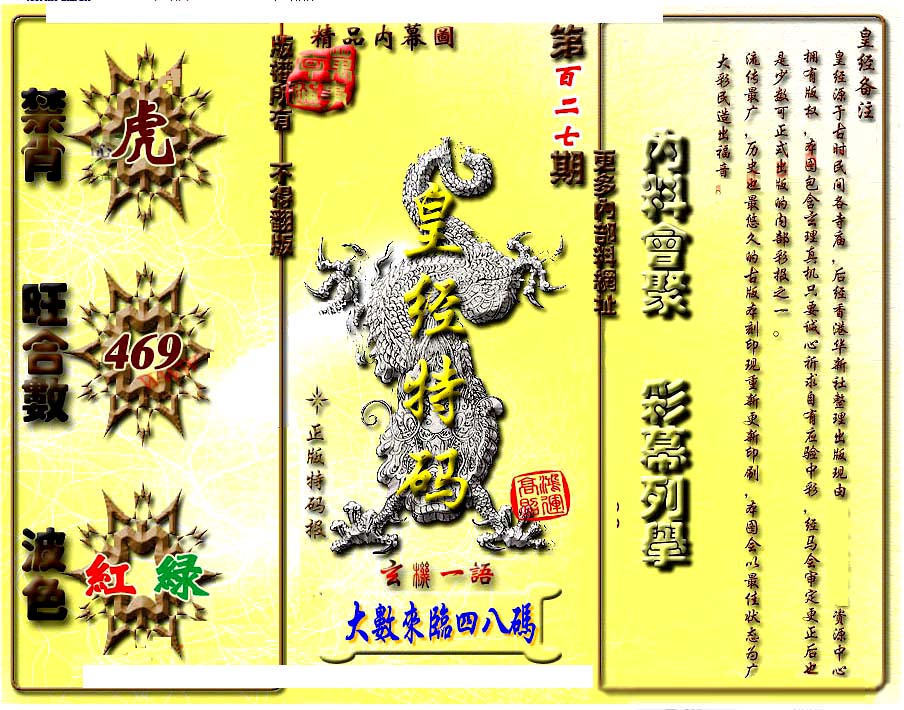 皇经备注
皇经源于古时民间各寺庙，后经香港华新社整理出版现由 资源中心
拥有版权，本图包含玄理真机只要诚心祈求自有应验中彩，经马会审定更正后也
是少数可正式出版的内部彩报之一。
流传最广，历史也最悠久的古版本刻印现重新更新印刷，本图会以最佳状态为广
大彩民造出福音
內料會聚
彩幕列舉
更多內部料網址
第百二七期
精品內幕圖
皇经特码
正版特码报
鸿運高照
玄機一語
大數來臨四八碼
版權所有 不得翻版
禁肖
虎
旺合數
469
波色
紅 綠